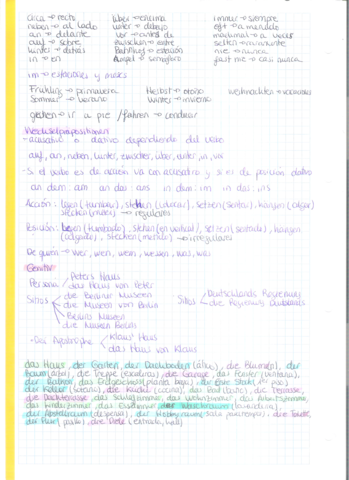 circa → recto über → encima immer → siempre
neben → al lado unter → debajo oft → a menudo
an → delante vor → antes de manchmal → a veces
auf → sobre zwischen → entre selten → raramente
hinter → detrás Bahnhof → estación nie → nunca
in → en Ampel → semáforo fast nie → casi nunca
im → estaciones y meses
Frühling → primavera Herbst → otoño Weihnachten →
Sommer → verano Winter → invierno
gehen → ir a pie / fahren → conducir
Wechselpräpositionen
- acusativo o dativo dependiendo del
auf, an, neben, hinter, zwischen, über, unter, in, vor
- Si el verbo es de acción va con acusativo y si es de posición dativo
an dem: am an das: ans in dem: im in das: ins
Acción: legen (tumbar), stellen (colocar), setzen (sentar), hängen (colgar)
stecken (meter) → regulares
Posición: liegen (tumbado), stehen (en vertical), sitzen (sentado), hängen
(colgado), stecken (metido) → irregulares
De quién → wer, wen, wem, wessen, was, wo
Genitiv
Peters Haus
Persona das Haus von Peter
Sitios die Berliner Museen Sitios Deutschlands Regierung
die Museen von Berlin die Regierung Deutschlands
Berlins Museen
die Museen Berlins
- Con Apostrophe Klaus' Haus
das Haus von Klaus
das Haus, der Garten, der Dachboden (ático), die Blume (flor), der
Baum (árbol), die Treppe (escalera), die Garage, das Fenster (ventana),
der Balkon, das Erdgeschoss (planta baja), der erste Stock (1º piso)
der Keller, die Küche (cocina), das Bad (baño), die Terrasse,
die Dachterrasse, das Schlafzimmer, das Wohnzimmer, das Arbeitszimmer,
das Kinderzimmer, das Esszimmer, der Waschraum (lavandería),
der Abstellraum (despensa), der Hobbyraum (sala pasatiempos), die Toilette,
der Flur (pasillo), die Diele (entrada, hall)